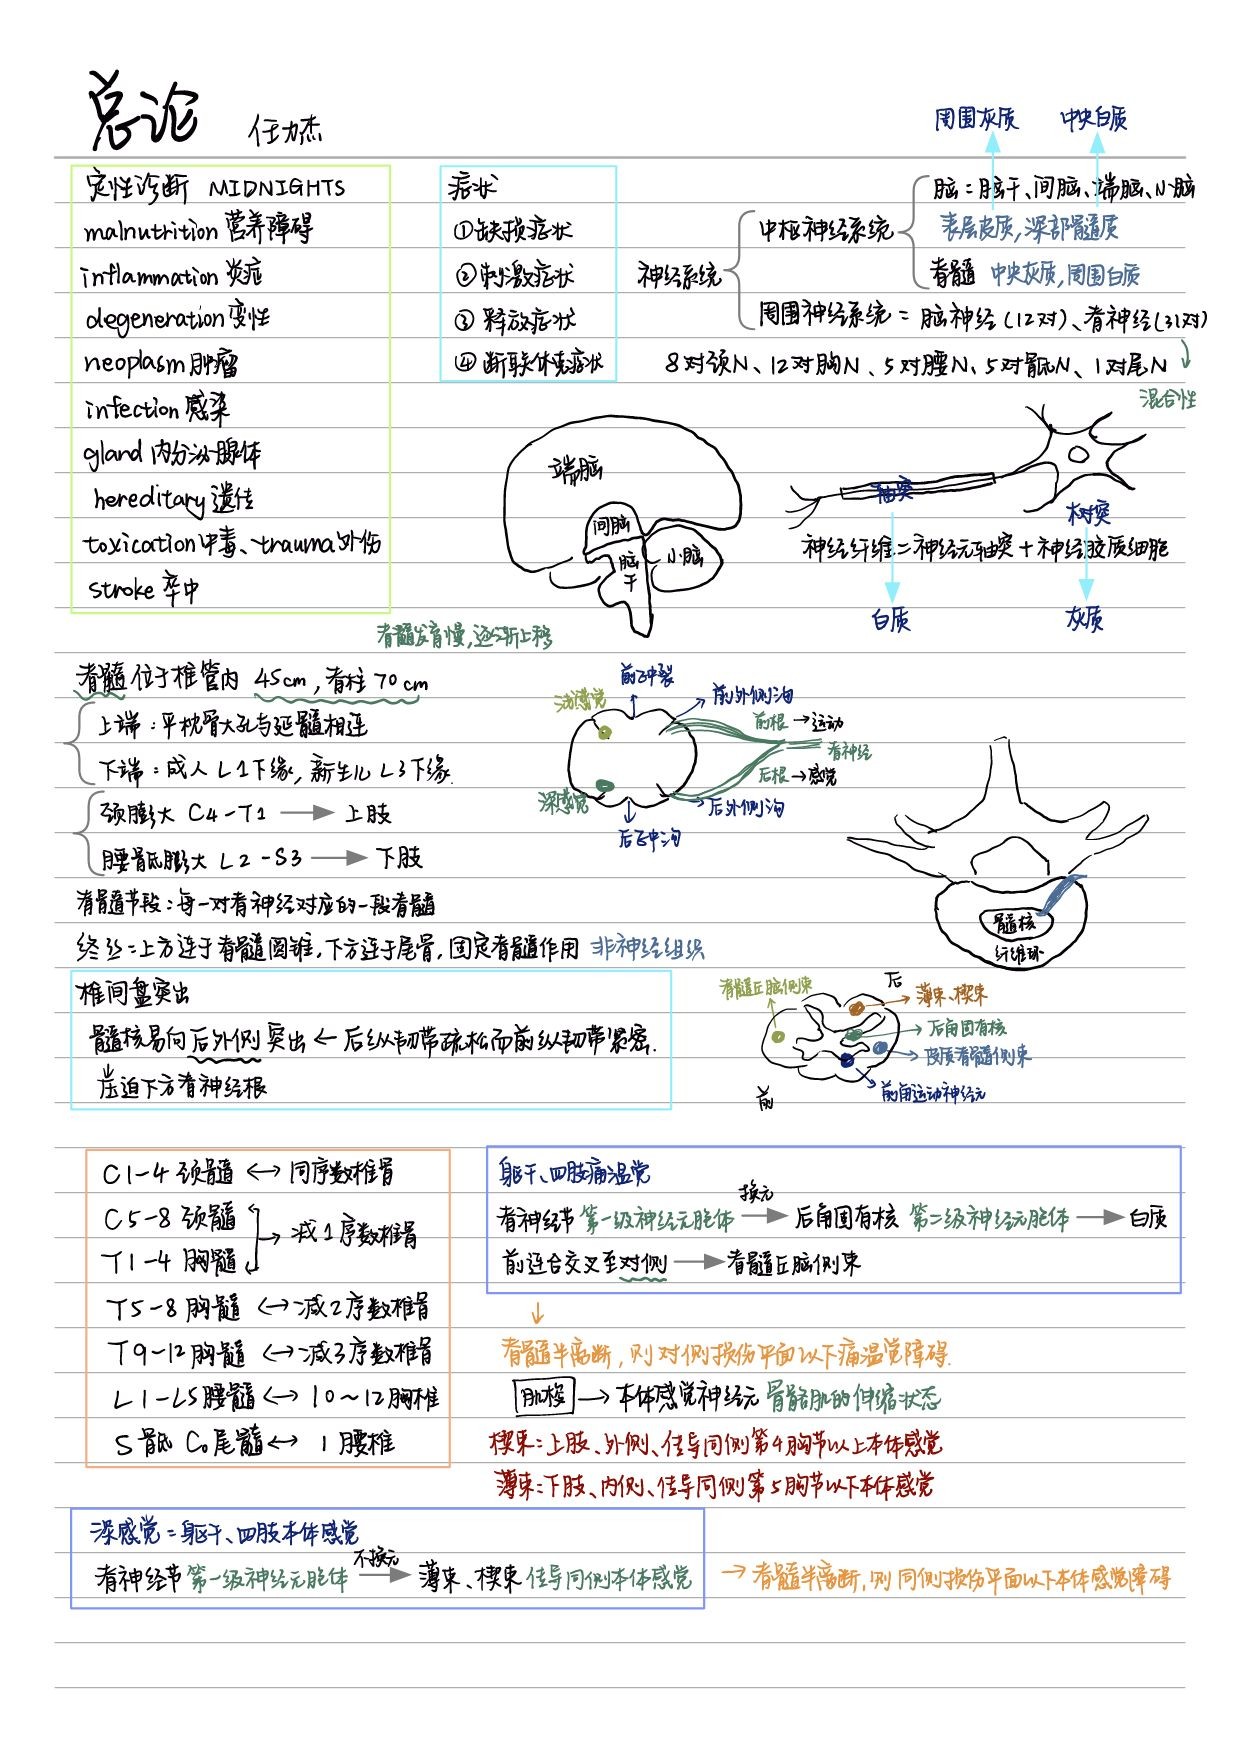 总论 任力杰
周围灰质 中央白质
定性诊断 MIDNIGHTS
malnutrition 营养障碍
inflammation 炎症
degeneration 变性
neoplasm 肿瘤
infection 感染
gland 内分泌腺体
hereditary 遗传
toxication 中毒、trauma 外伤
stroke 卒中
症状
①缺损症状
②刺激症状
③释放症状
④断联休克症状
神经系统
中枢神经系统
脑=脑干、间脑、端脑、小脑
表层皮质,深部髓质
脊髓 中央灰质,周围白质
周围神经系统=脑神经(12对)、脊神经(31对)
8对颈N、12对胸N、5对腰N、5对骶N、1对尾N
混合性
端脑
间脑
脑干
小脑
轴突
树突
神经纤维=神经元轴突+神经胶质细胞
白质
灰质
脊髓发育慢,逐渐上移
脊髓位于椎管内 45cm,脊柱70cm
上端:平枕骨大孔与延髓相连
下端:成人L1下缘,新生儿L3下缘.
颈膨大 C4-T1 → 上肢
腰骶膨大 L2-S3 → 下肢
脊髓节段:每一对脊神经对应的一段脊髓
终丝=上方连于脊髓圆锥,下方连于尾骨,固定脊髓作用 非神经组织
前正中裂
前外侧沟
浅感觉
前根→运动
脊神经
后根→感觉
深感觉
后外侧沟
后正中沟
髓核
纤维环
椎间盘突出
髓核易向后外侧突出 ← 后纵韧带疏松而前纵韧带紧密.
压迫下方脊神经根
脊髓丘脑侧束
后
薄束、楔束
后角固有核
皮质脊髓侧束
前角运动神经元
前
C1-4 颈髓 ↔ 同序数椎骨
C5-8 颈髓
T1-4 胸髓
→ 减1序数椎骨
T5-8 胸髓 ↔ 减2序数椎骨
T9-12 胸髓 ↔ 减3序数椎骨
L1-L5腰髓 ↔ 10~12胸椎
S骶 Co尾髓 ↔ 1腰椎
躯干、四肢痛温觉
脊神经节 第一级神经元胞体 换元→ 后角固有核 第二级神经元胞体 → 白质
前连合交叉至对侧 → 脊髓丘脑侧束
↓
脊髓半离断,则对侧损伤平面以下痛温觉障碍.
肌梭 → 本体感觉神经元 骨骼肌的伸缩状态
楔束=上肢、外侧、传导同侧第4胸节以上本体感觉
薄束:下肢、内侧、传导同侧第5胸节以下本体感觉
深感觉=躯干、四肢本体感觉
脊神经节 第一级神经元胞体 不换元→ 薄束、楔束 传导同侧本体感觉 → 脊髓半离断,则同侧损伤平面以下本体感觉障碍